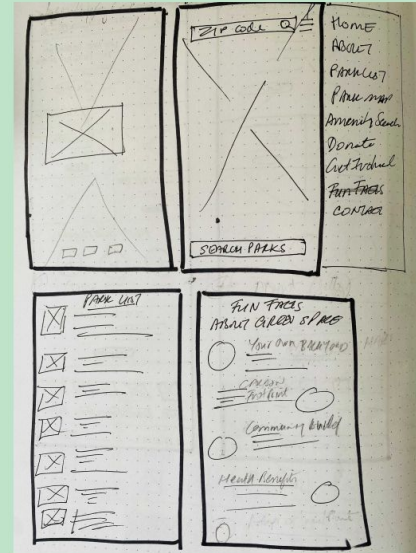 ZIP CODE
SEARCH PARKS
HOME
ABOUT
PARK LIST
PARK MAP
Amenity Search
Donate
Get Involved
FUN FACTS
CONTACT
PARK LIST
FUN FACTS
ABOUT GREEN SPACE
Your own BACKYARD
CARBON
FootPrint
Community
Health Benefits